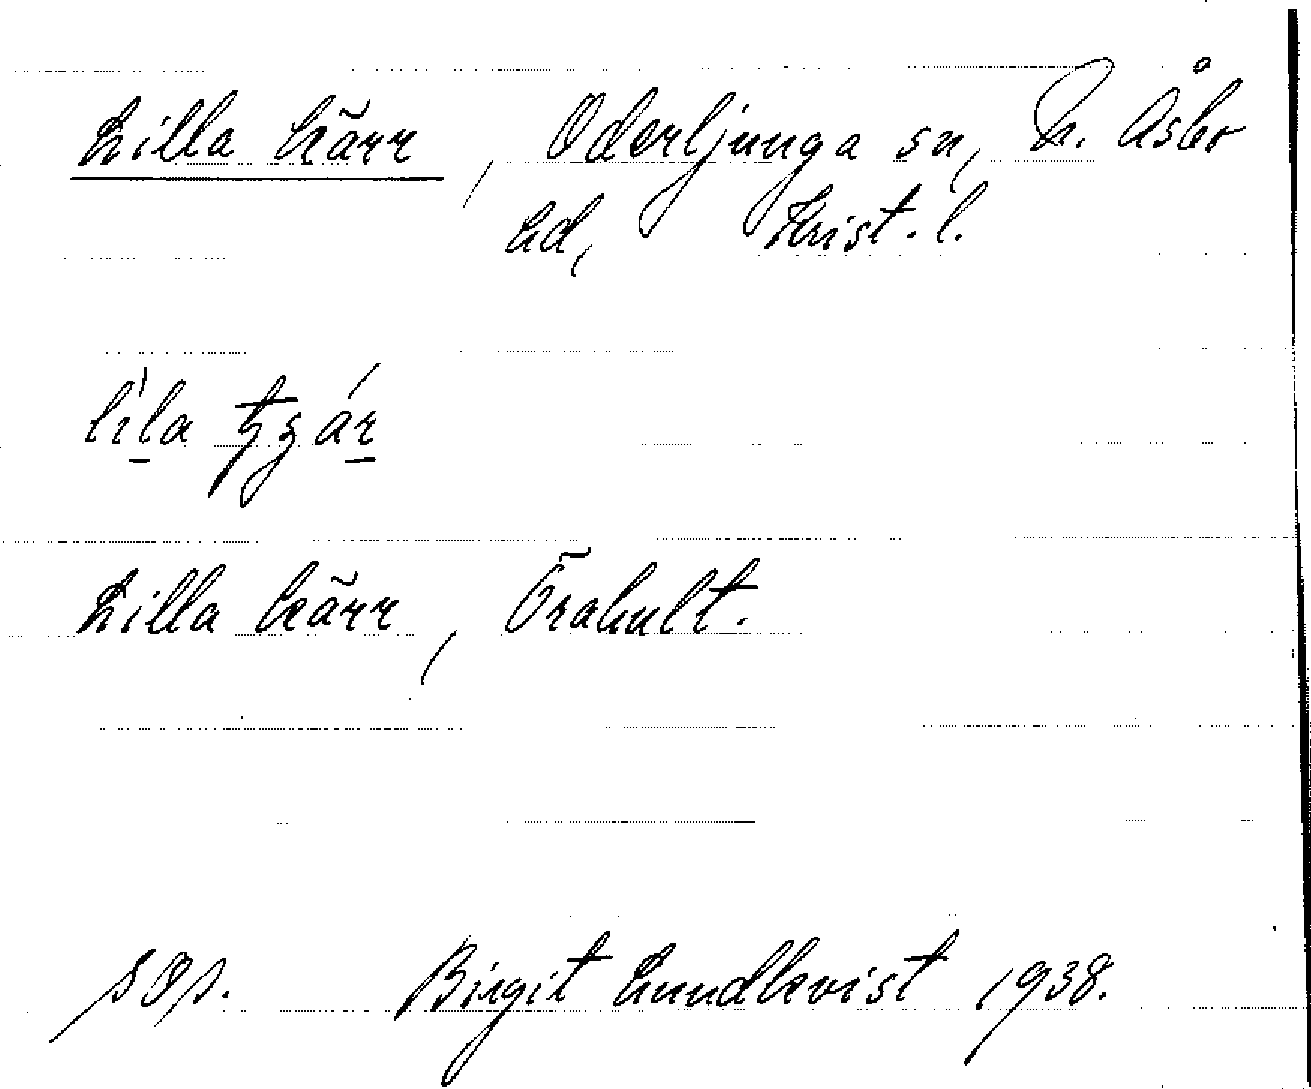 Lilla kärr, Oderljunga sn, N. Åsbo
hd, Krist. l.
Lilla kärr, Örahult.
Birgit Lundkvist 1938.